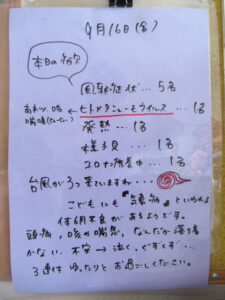 9月16日(金)
本日の病欠
風邪症状…5名
高ネツ、咳
喘鳴(ヒューヒュー)
← ヒトメタニューモウイルス…1名
発熱…1名
様子見…1名
コロナ療養中…1名
台風が3つ来ていますね…
こどもにも"気象病"といわれる
体調不良があるようです。
頭痛、咳や喘息、なんだか落ち着
かない、不安→泣く、ぐずぐず…
3連休 ゆったりと お過ごしください。